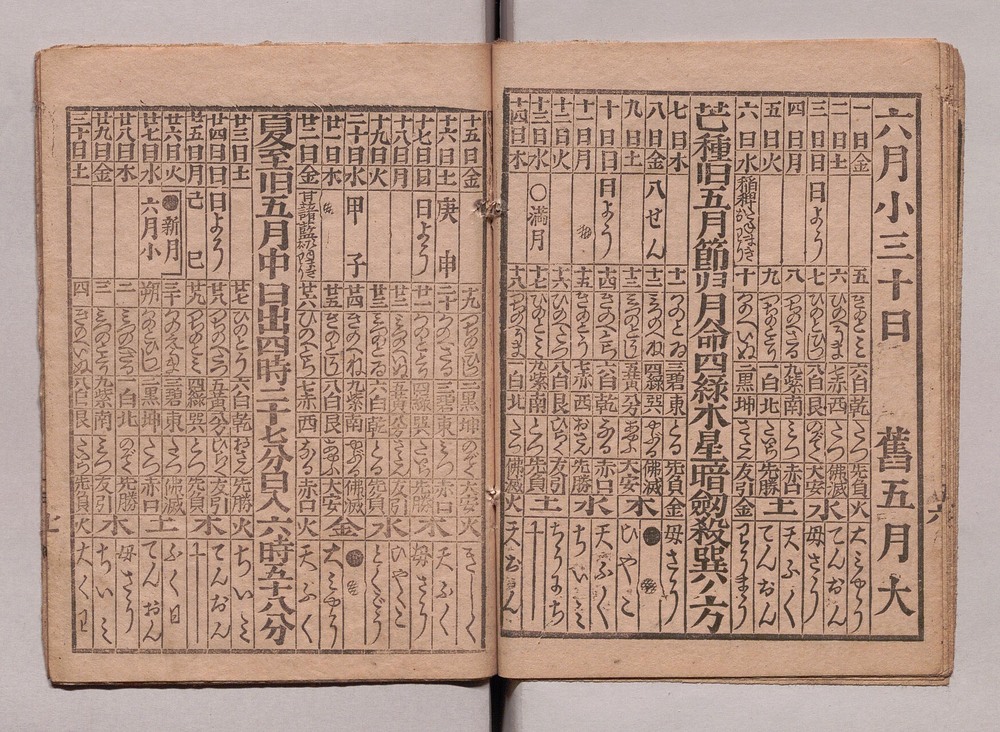 六月小三十日 舊五月大
一日金 五 きのとミ 六白乾 先負 火 大ミやう
二日土 六 ひのへうま 七赤西 たつ 佛滅 てんおん
三日日 日よう 七 ひのとひつじ 八白艮 のぞく 大安 水 母さう
四日月 八 つちのへさる 九紫南 ミつ 赤口 天ふく
五日火 九 つちのととり 一白北 先勝 土 てんおん
六日水 十 かのへいぬ 二黒坤 友引 金
芒種旧五月節归月命四緑木星暗劔殺巽ノ方
七日木 十一 かのとゐ 三碧東 とる 先負 金 母さう
八日金 八せん 十二 ミづのへね 四緑巽 やぶる 佛滅
九日土 十三 ミづのとうし 五黄八分 あやぶ 大安 木 ひやくミ
十日日 日よう 十四 きのへとら 六白乾 なる 赤口 天ふく
十一日月 十五 きのとう 七赤西 おさん 先勝 水 ちいミ
十二日火 十六 ひのへたつ 八白艮 ひらく 友引
十三日水 ○満月 十七 ひのとミ 九紫南 とつ 先負 土
十四日木 十八 つちのへうま 一白北 たつ 佛滅 火 天おん
十五日金 十九 つちのとひつじ 二黒坤 のぞく 大安 火
十六日土 庚申 二十 かのへさる 三碧東 ミつ 赤口 天ふく
十七日日 日よう 廿一 かのととり 四緑巽 先勝 木 母さう
十八日月 廿二 ミづのへいぬ 五黄八分 友引 ひやくミ
十九日火 廿三 ミづのとゐ 六白乾 先負 水
二十日水 甲子 廿四 きのへね 九紫南 やぶる 佛滅
廿一日木 廿五 きのとうし 八白艮 あやぶ 大安 金 大ミやう
廿二日金 廿六 ひのへとら 七赤西 なる 赤口 火 天ふく
夏至旧五月中 日出四時二十七分日入六時五十八分
廿三日土 廿七 ひのとう 六白乾 おさん 先勝 火 ちいミ
廿四日日 日よう 廿八 つちのへたつ 五黄八分 ひらく 友引 てんおん
廿五日月 己巳 廿九 つちのとミ 四緑巽 とつ 先負 木
廿六日火 新月 三十 かのへうま 三碧東 たつ 佛滅 ふく日
廿七日水 六月小 朔 かのとひつじ 二黒坤 赤口 土 てんおん
廿八日木 二 ミづのへさる 一白北 のぞく 先勝 母さう
廿九日金 三 ミづのととり 九紫南 ミつ 友引 水 ちいミ
三十日土 四 きのへいぬ 八白艮 先負 火
六
七